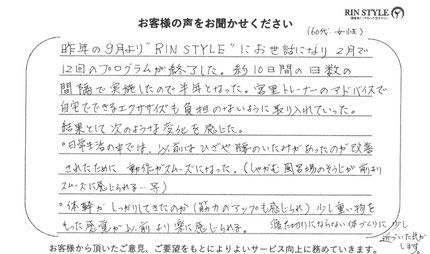 RIN STYLE
お客様の声をお聞かせください
(60代 女性)
昨年の9月より"RIN STYLE"にお世話になり2月で
12回のプログラムが終了した。約10日間の日数の
間隔で実施したので半年となった。宮里トレーナーのアドバイスで
自宅でできるエクササイズも負担のないように取り入れていった。
結果として次のような変化を感じた。
°日常生活の中では、以前はひざや腰のいたみがあったのが改善
されたために 動作がスムーズになった。(しゃがむ 風呂場のそうじが前より
スムーズに感じられる…等)
°体幹がしっかりしてきたのか(筋力のアップも感じられ)少し重い物を
もった感覚が以前より楽に感じられる。 寝たきりにならない体づくりに少し
近づいた気が
します。
お客様から頂いたご意見、ご要望をもとによりよいサービス向上に務めていきます。